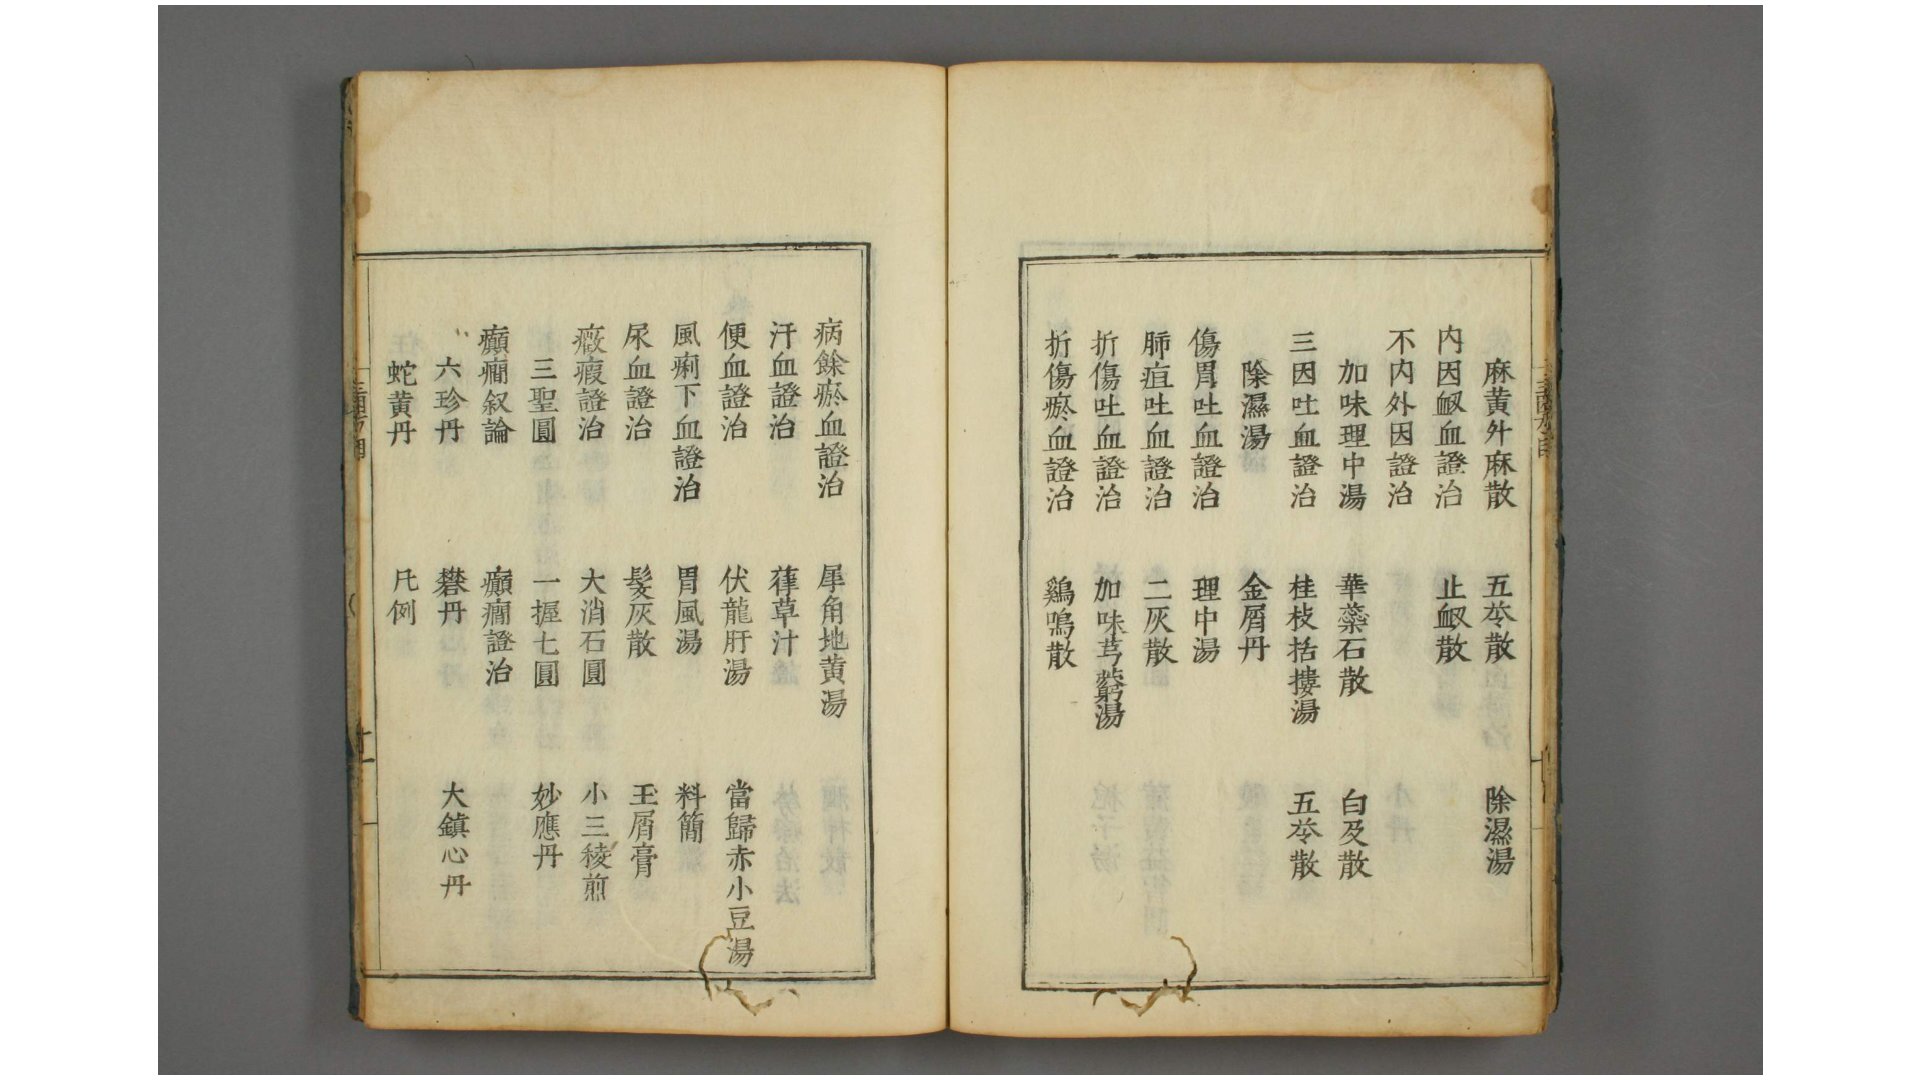 麻黄外麻散 五苓散 除濕湯
内因衂血證治 止衂散
不内外因證治
加味理中湯 華蘂石散 白及散
三因吐血證治 桂枝括摟湯 五苓散
除濕湯 金屑丹
傷胃吐血證治 理中湯
肺疽吐血證治 二灰散
折傷吐血證治 加味芎藭湯
折傷瘀血證治 鷄鳴散
病餘瘀血證治 犀角地黄湯
汗血證治 葎草汁
便血證治 伏龍肝湯 當歸赤小豆湯
風痢下血證治 胃風湯 料簡
尿血證治 髮灰散 玉屑膏
癥瘕證治 大消石圓 小三稜煎
三聖圓 一握七圓 妙應丹
癲癇叙論 癲癇證治
六珍丹 礬丹 大鎮心丹
蛇黄丹 凡例